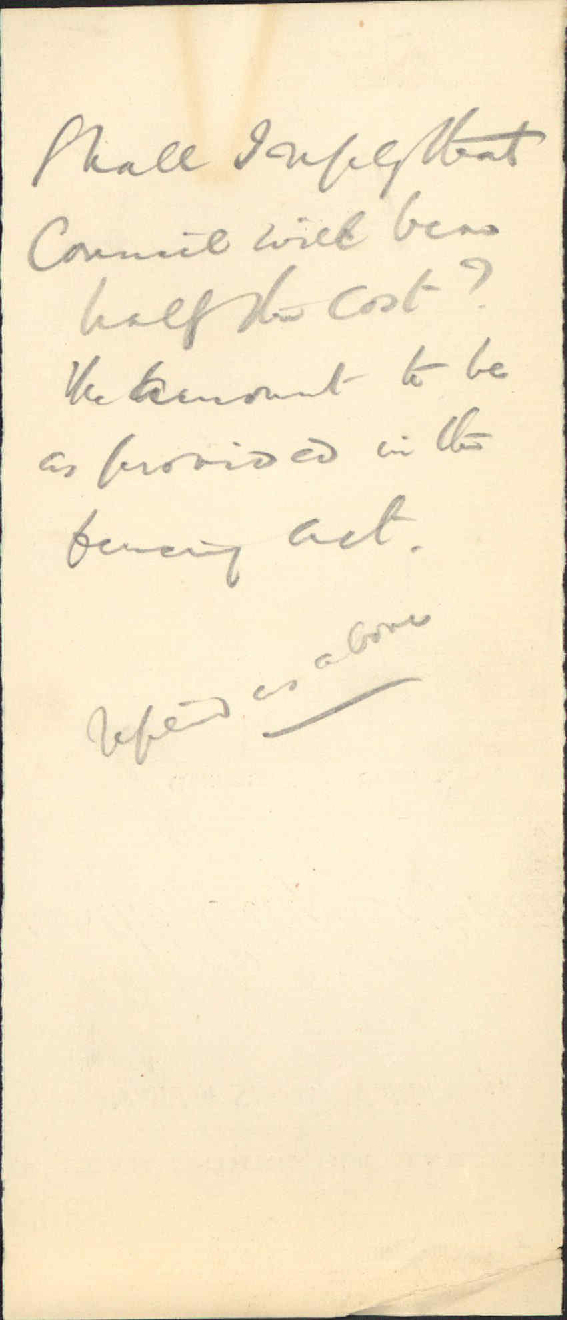 Shall I reply that
Council will bear
half the cost?
the amount to be
as provided in the
fencing act.
replied as above